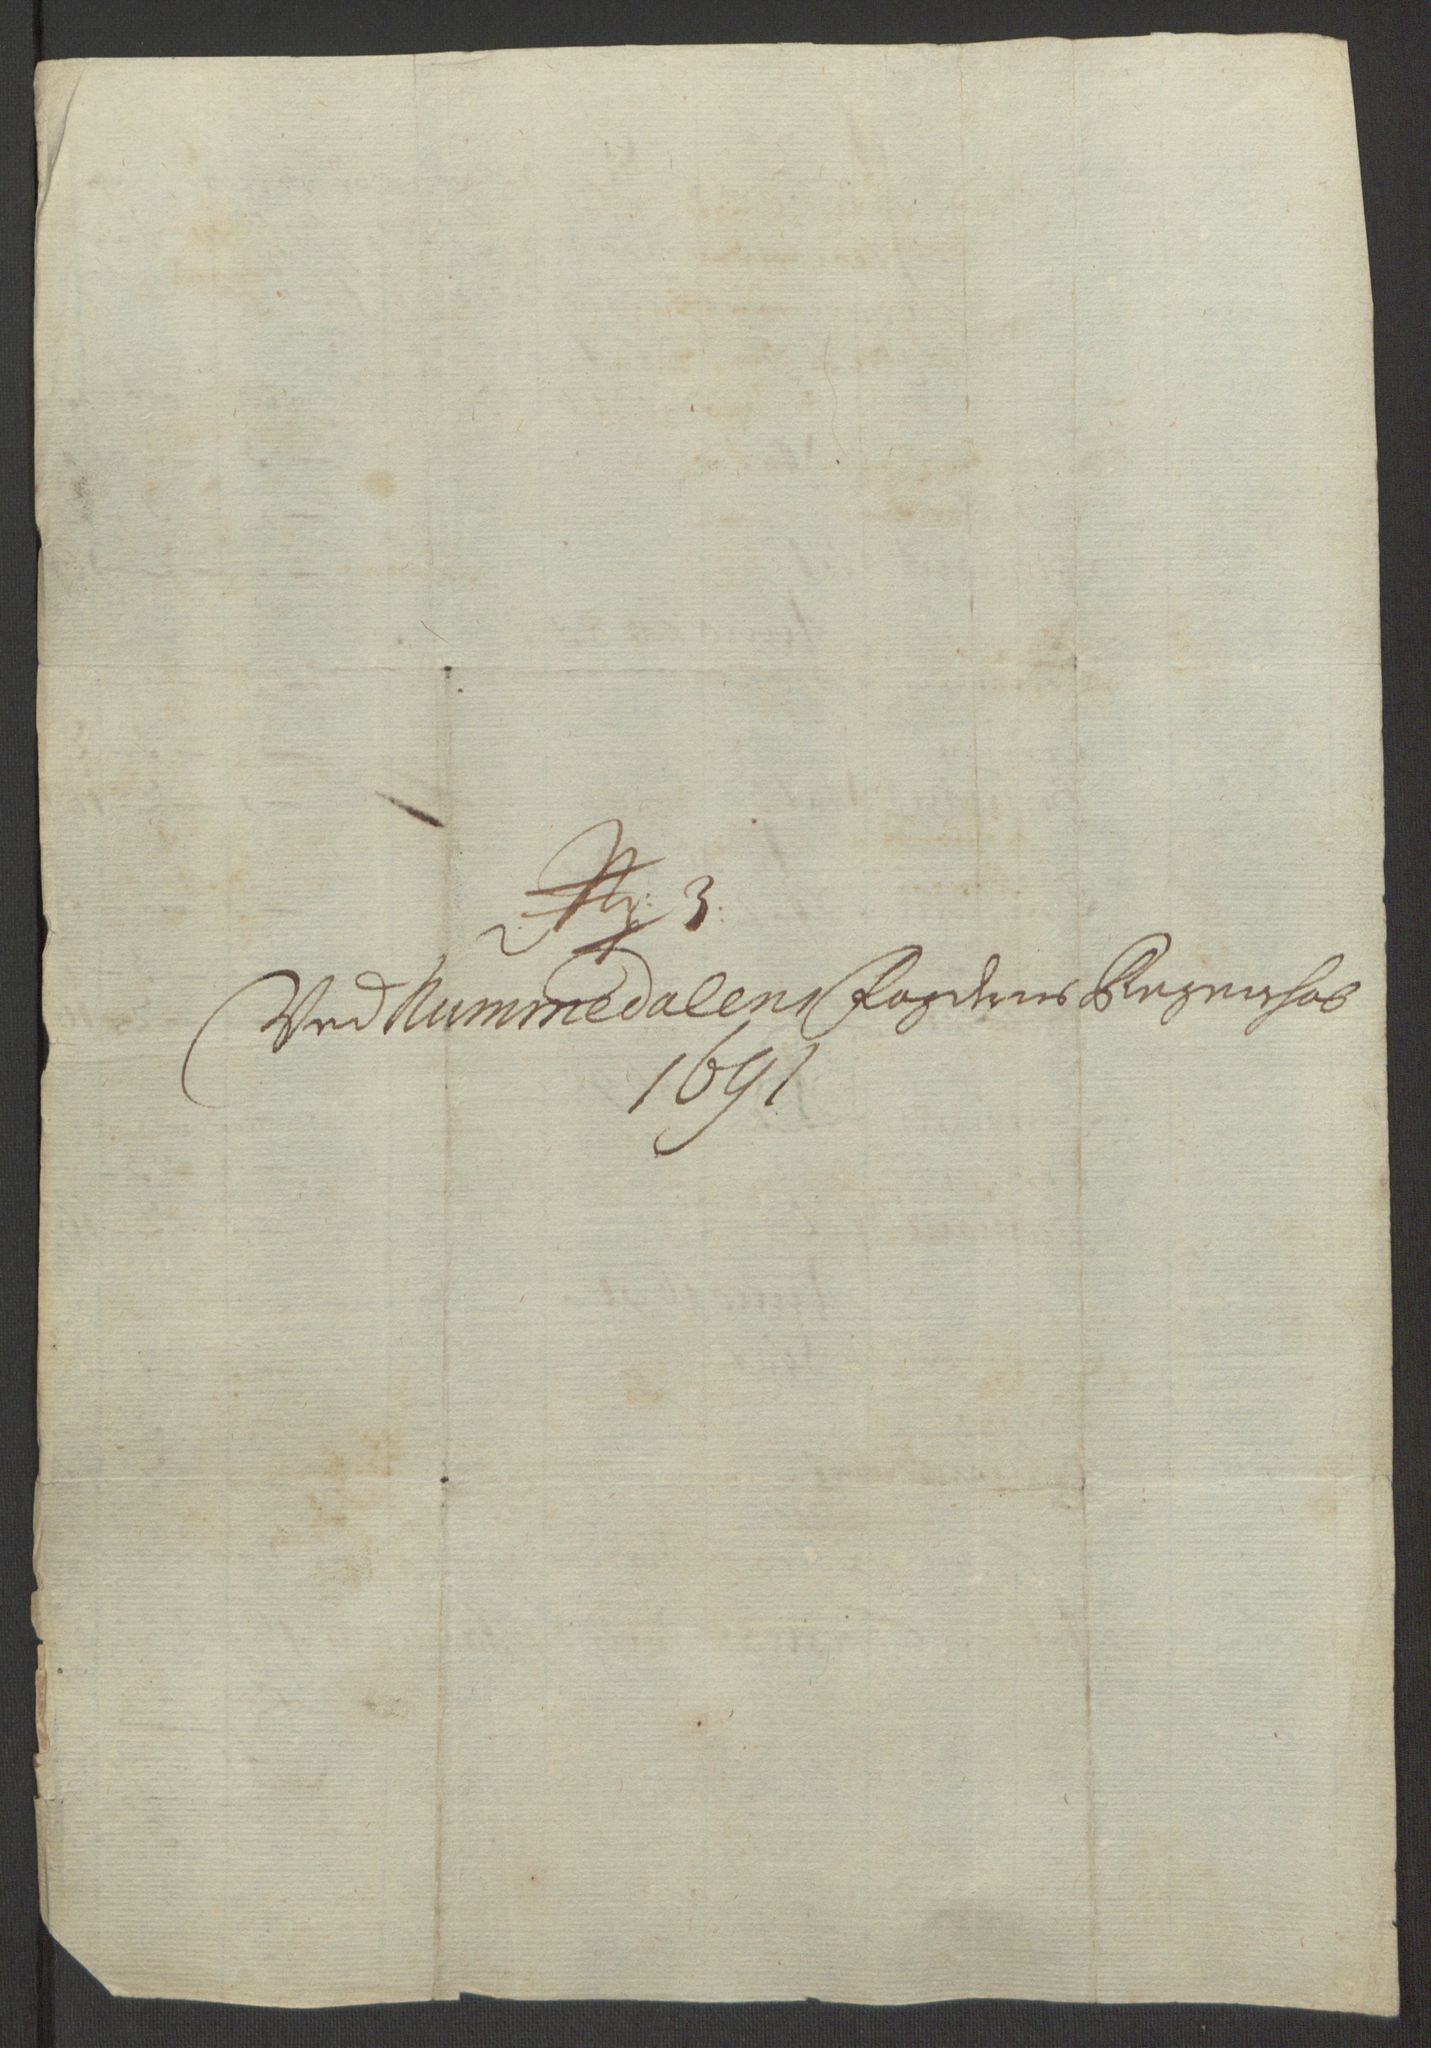 N: 3.
Ved Nummedalens Fogderies Regenskab
1691